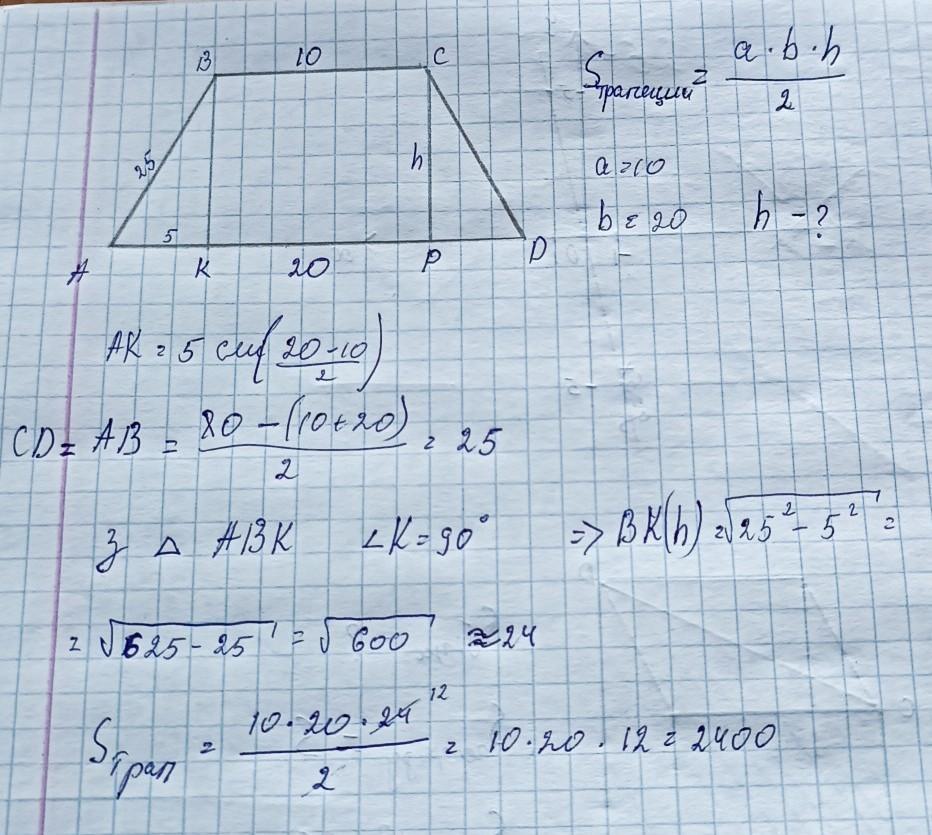 B 10 C
25
h
5
A K 20 P D
Sтрапеции = a · b · h / 2
a = 10
b = 20 h - ?
AK = 5 см (20 - 10 / 2)
CD = AB = 80 - (10 + 20) / 2 = 25
З △ ABK ∠K = 90° => BK(h) = √25² - 5² =
= √625 - 25 = √600 ≈ 24
Sтрап = 10 · 20 · 24 12 / 2 = 10 · 20 · 12 = 2400